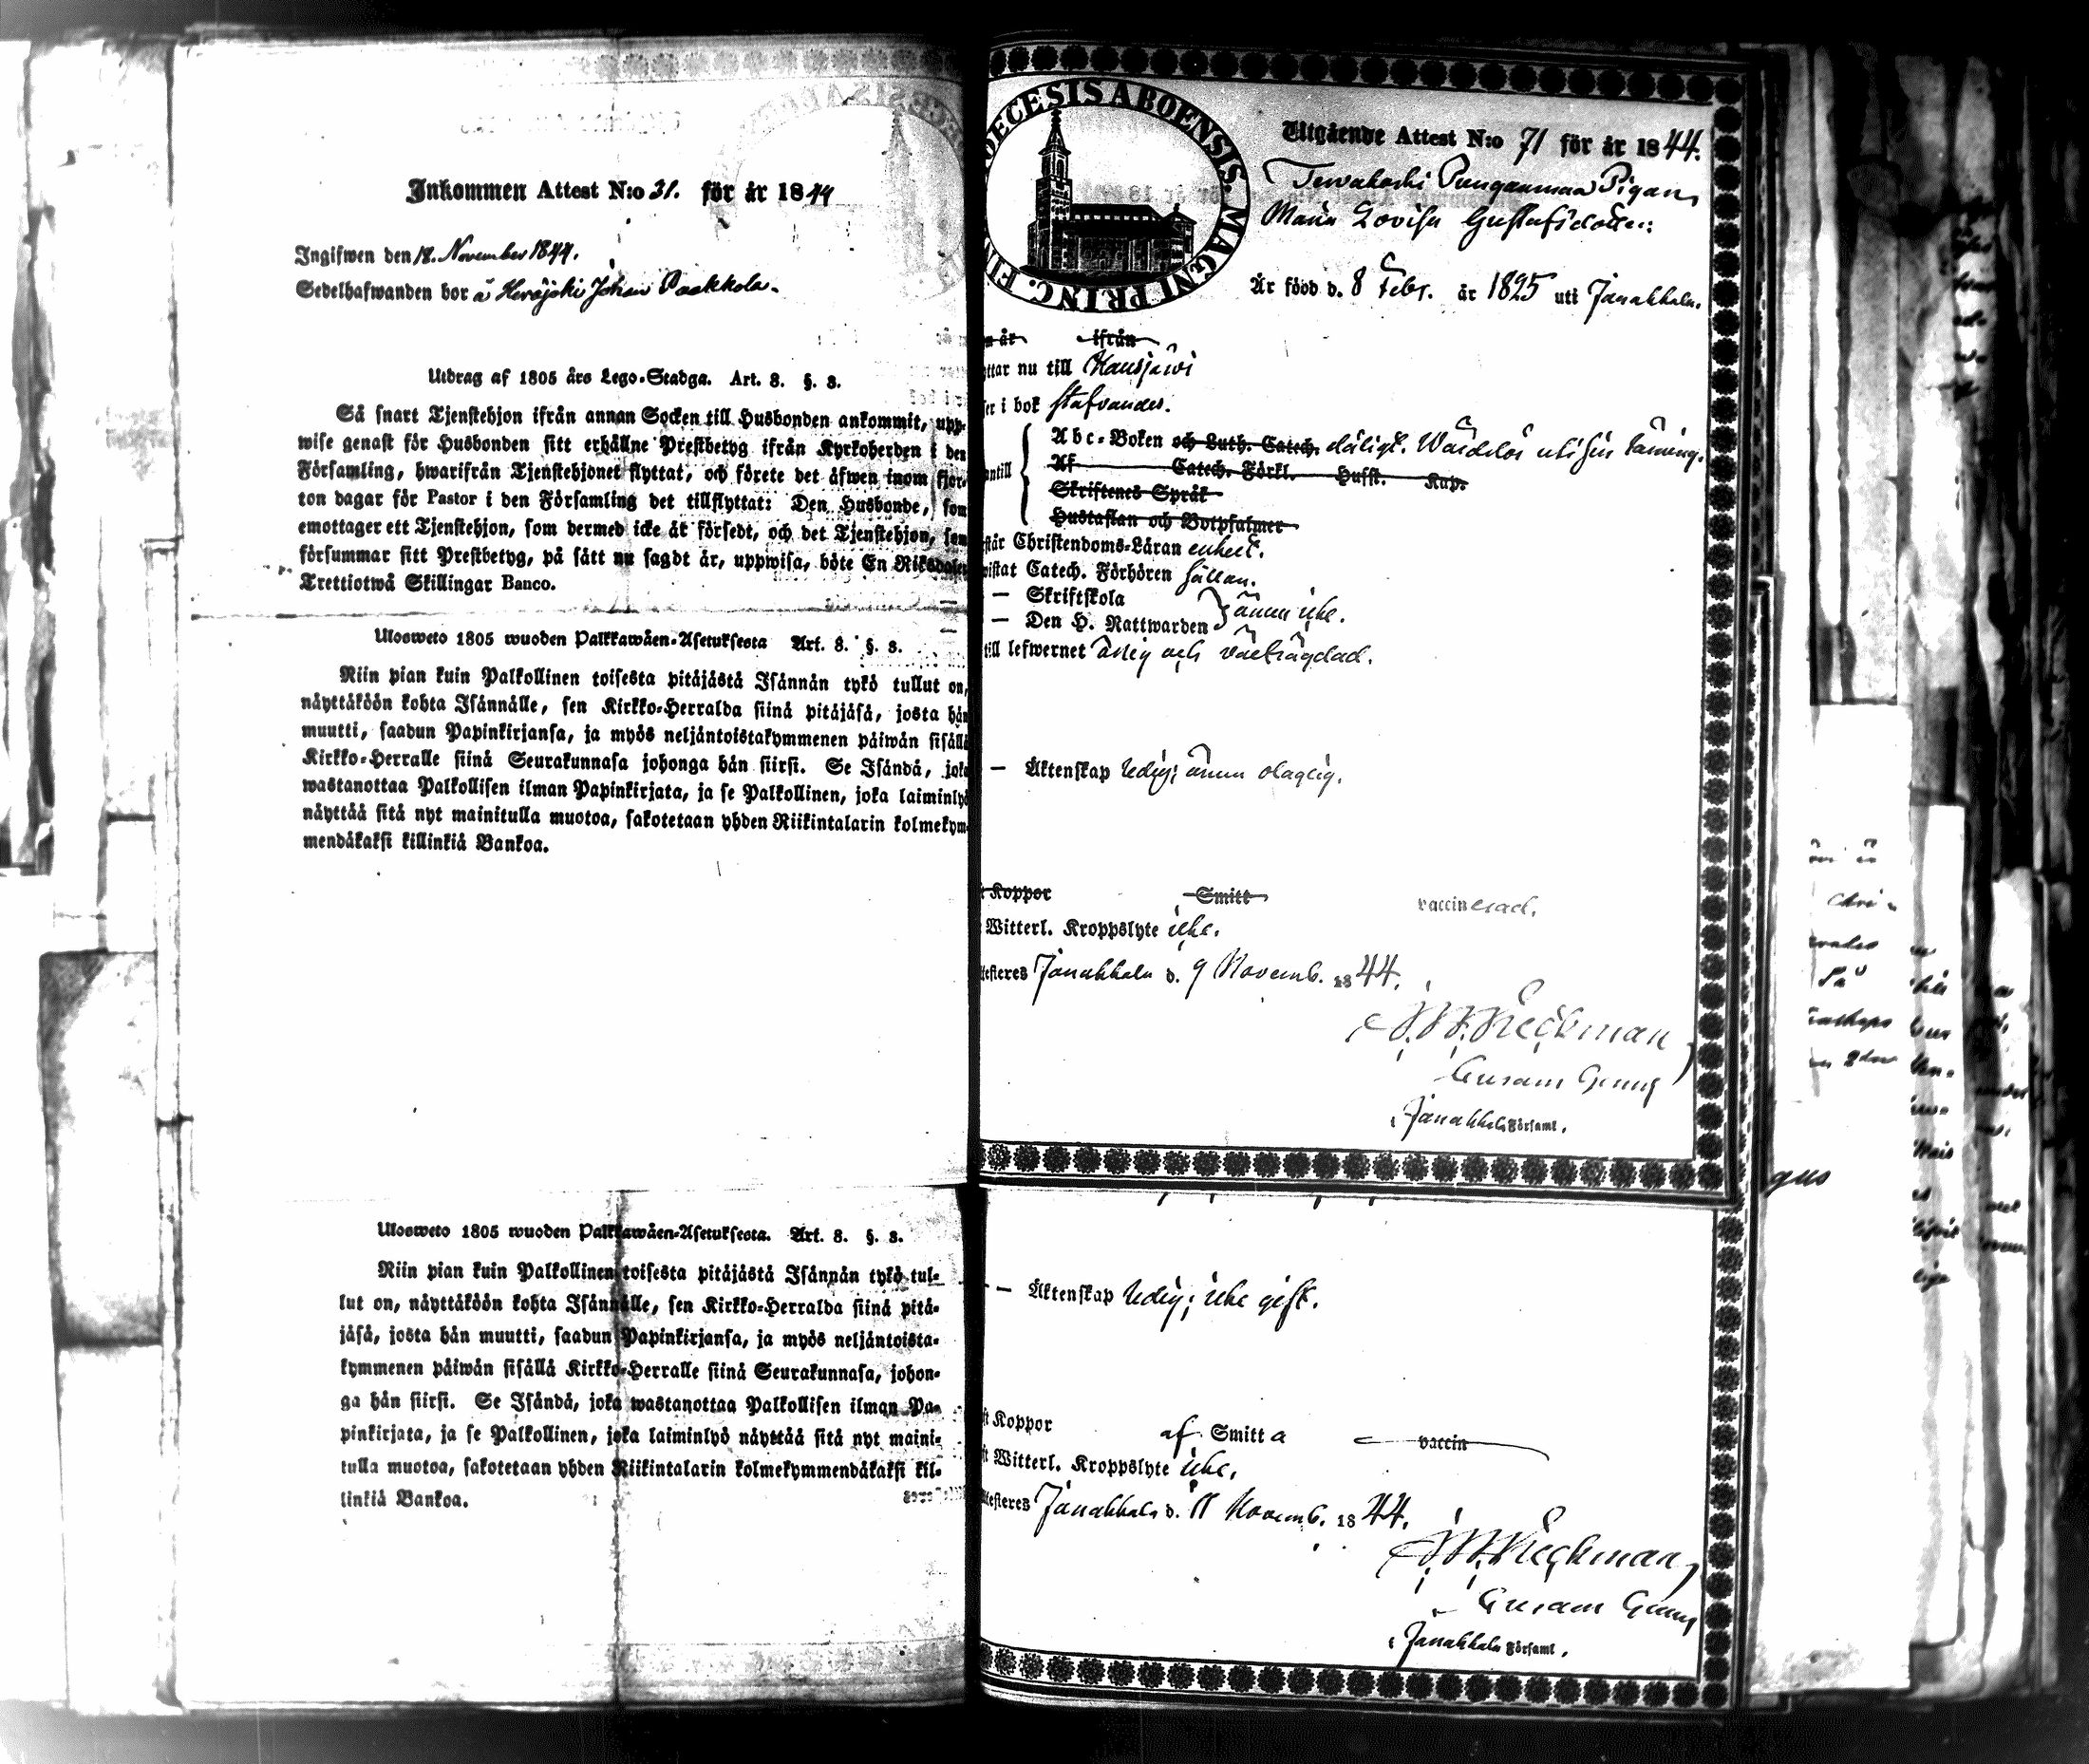 Inkommen Attest N:o 31. för år 1844
Ingifwen den 18. November 1844.
Sedelhafwanden bor å Herajoki Johan Paakkola.
Utdrag af 1805 års Lego-Stadga. Art. 8. §. 8.
Så snart Tjenstehjon ifrån annan Socken till Husbonden ankommit, upp-
wise genast för Husbonden sitt erhållne Prestbetyg ifrån Kyrkoherden i den
Församling, hwarifrån Tjenstehjonet flyttat, och förete det äfwen inom fjor-
ton dagar för Pastor i den Församling det tillflyttat: Den Husbonde, som
emottager ett Tjenstehjon, som dermed icke är försedt, och det Tjenstehjon, som
försummar sitt Prestbetyg, på sätt nu sagdt är, uppwisa, böte En Riksdaler
Trettiotwå Skillingar Banco.
Ulosweto 1805 wuoden Palkkawäen-Asetuksesta Art. 8. §. 8.
Niin pian kuin Palkollinen toisesta pitäjästä Isännän tykö tullut on,
näyttäköön kohta Isännälle, sen Kirkko-Herralda siinä pitäjäsä, josta hän
muutti, saadun Papinkirjansa, ja myös neljäntoistakymmenen päiwän sisällä
Kirkko-Herralle siinä Seurakunnasa johonga hän siirsi. Se Isändä, joka
wastanottaa Palkollisen ilman Papinkirjata, ja se Palkollinen, joka laiminlyö
näyttää sitä nyt mainitulla muotoa, sakotetaan yhden Riikintalarin kolmekym-
mendäkaksi killinkiä Bankoa.
Ulosweto 1805 wuoden Palkkawäen-Asetuksesta. Art. 8. §. 8.
Niin pian kuin Palkollinen toisesta pitäjästä Isännän tykö tul-
lut on, näyttäköön kohta Isännälle, sen Kirkko-Herralda siinä pitä-
jäsä, josta hän muutti, saadun Papinkirjansa, ja myös neljäntoista-
kymmenen päiwän sisällä Kirkko-Herralle siinä Seurakunnasa, johon-
ga hän siirsi. Se Isändä, joka wastanottaa Palkollisen ilman Pa-
pinkirjata, ja se Palkollinen, joka laiminlyö näyttää sitä nyt maini-
tulla muotoa, sakotetaan yhden Riikintalarin kolmekymmendäkaksi kil-
linkiä Bankoa.
DECESIS ABOENSIS. MAGNI PRINC. FIN
Utgående Attest N:o 71 för år 1844.
Pigan
Maria Lovisa Gustafsdotter:
Är född d. 8 Febr. år 1825 uti Janakkala.
år ifrån
ttar nu till Hausjärvi
er i bok stafvandes.
antill
Abc-Boken och Luth. Catech. dåligt. Wårdslös uti sin läsning.
Af Catech. Förkl. Hufst. Kap.
Skriftenes Språk
Hustaflan och Botpsalmer
står Christendoms-Läran enkelt.
wistat Catech. Förhören sällan.
— Skriftskola
— Den H. Nattwarden } ännu icke.
till lefwernet ostig och vårdslös
— Äktenskap ledig; ännu olaglig.
t Koppor Smitt vaccinerad.
Witterl. Kroppslyte icke.
ttesteres Janakkala d. 9 Novemb. 1844.
Heckman
i Janakkala Församl.
— Äktenskap ledig; icke gift.
t Koppor af Smitta vaccin
t Witterl. Kroppslyte icke.
ttesteres Janakkala d. 11 Novemb. 1844.
Heckman
i Janakkala Församl.